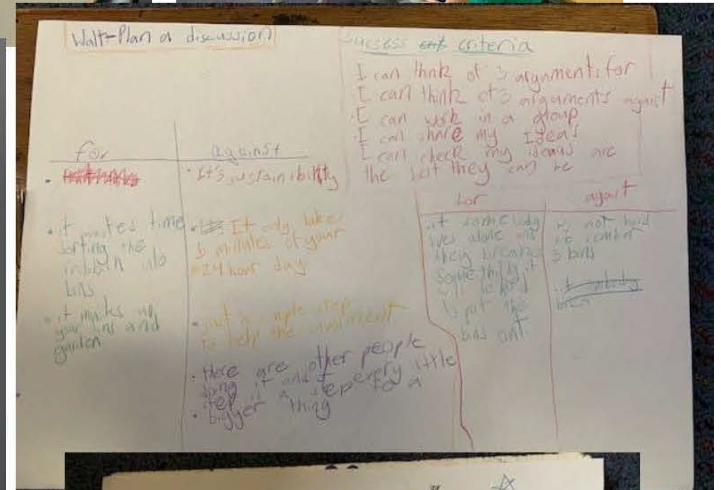 Walt-Plan a discussion
Success criteria
I can think of 3 arguments for
I can think of 3 arguments against
I can work in a group
I can share my Ideas
I can check my ideas are
the best they can be
for
against
It's sustainibility
it wastes time
sorting the
rubbish into
bins
It only takes
5 minutes of your
24 hour day
your bins and
garden
just a simple step
to help the
there are other people
doing it and
step is a step every little
bigger thing to a
for
lives alone and
they
something it
to put the
bins out
not hard
to
3 bins